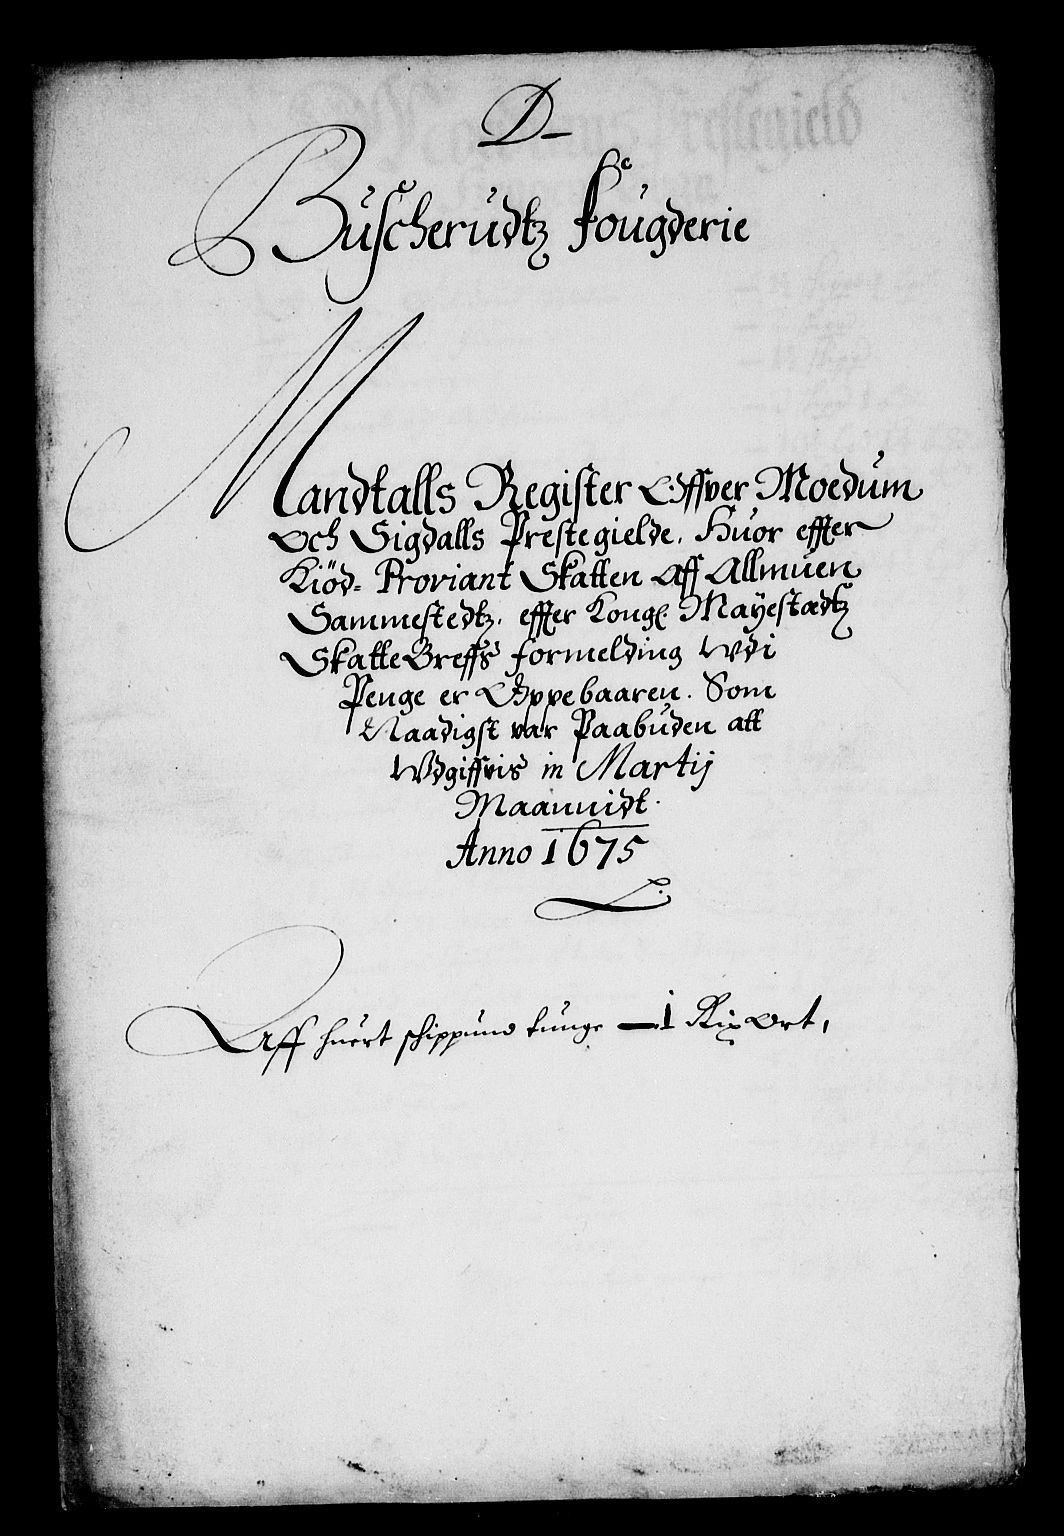 D
Buscherudtz Fougderie
Mandtalls Register Offver Moedum
Och Sigdalls Prestegielde. Huor effter
Kiöd- Proviant Skatten Aff Allmuen
Sammestedtz. effter Kongl. Mayestædtz
Skatte Breffs formelding Wdi
Penge er Oppebaaren. Som
Naadigst var Paabuden att
Wdgiffvis in Martij
Maannidt.
Anno 1675
Aff huert schippund tunge — 1 Rix Ort,